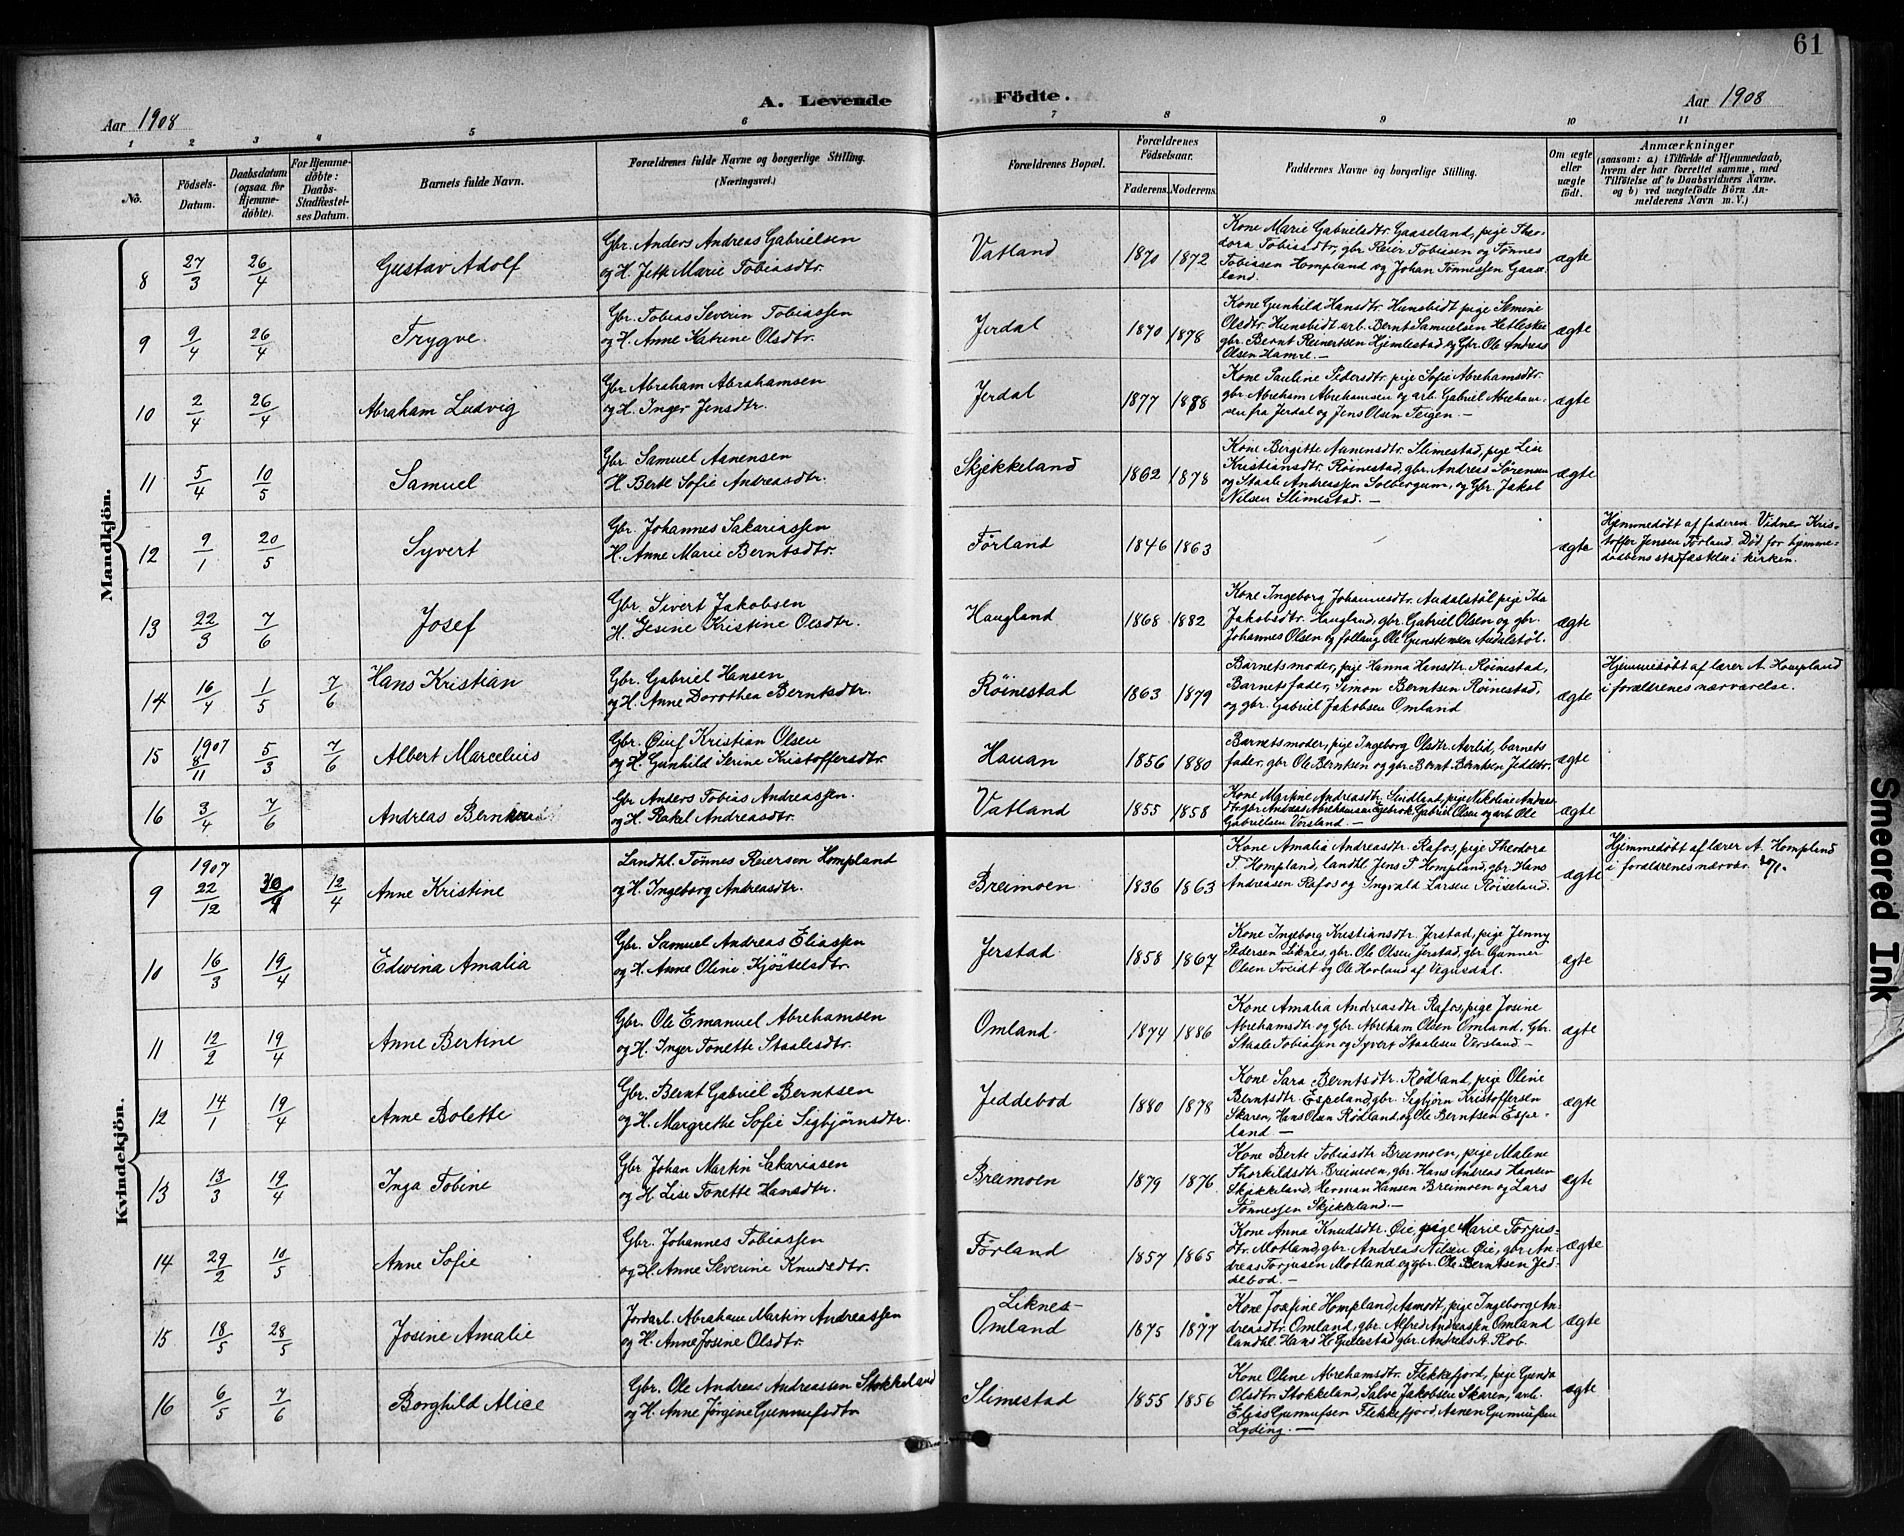 61
A. Levende Födte.
Aar 1908
Aar 1908
1 2 3 4 5 6 7 8 9 10 11
No.
Födsels-Datum.
Daabsdatum (ogsaa for Hjemmedøbte).
For Hjemmedøbte: Daabs-Stadfæstelses Datum.
Barnets fulde Navn.
Forældrenes fulde Navne og borgerlige Stilling. (Næringsvei.)
Forældrenes Bopæl.
Forældrenes Födselsaar.
Faderens. Moderens.
Faddernes Navne og borgerlige Stilling.
Om ægte eller uægte født.
Anmærkninger
(saasom: a) i Tilfælde af Hjemmedaab,
hvem der har forrettet samme, med
Tilföielse af to Daabsvidners Navne,
og b) ved uægtefödte Börn An-
melderens Navn m. V.)
Mandkjön.
8 27/3 26/4 Gustav Adolf
Gbr. Anders Andreas Gabrielsen
og H. Jette Marie Tobiasdtr.
Vatland 1870 1872
Kone Marie Gabrielsdtr. Gaaseland, pige Theo-
dora Tobiasdtr, gbr Reier Tobiasen og Tønnes
Tobiasen Hompland og Johan Tønnessen Gaase-
land.
ægte
9 9/4 26/4 Trygve.
Gbr. Tobias Severin Tobiassen
og H. Anne Katrine Olsdtr.
Jerdal 1870 1878
Kone Gunhild Hansdtr. Hunsbidt pige Semine
Olsdtr. Hunsbidt arb. Bernt Samuelsen Hetleskei
gbr. Bernt Reinertsen Hjemlestad og Gbr. Ole Andreas
Olsen Hamre. —
ægte
10 2/4 26/4 Abraham Ludvig
Gbr. Abraham Abrahamsen
og H. Inger Jensdtr.
Jerdal 1877 1888
Kone Pauline Pedersdtr. pige Sofie Abrehamsdtr.
gbr Abreham Abrehamsen og arb. Gabriel Abreham-
sen fra Jerdal og Jens Olsen Teigen. —
ægte
11 5/4 10/5 Samuel
Gbr. Samuel Aanensen
H. Berte Sofie Andreasdtr.
Skjekkeland 1862 1878
Kone Birgitte Aanensdtr. Slimestad, pige Lise
Kristiansdtr. Røinestad, gbr. Andreas Sørensen
og Staale Andreassen Solbergum, og Gbr. Jakob
Nilsen Slimestad. —
ægte
12 9/1 20/5 Syvert
Gbr. Johannes Sakariassen
H. Anne Marie Berntsdtr.
Førland 1846 1863
ægte
Hjemmedøbt af faderen. Vidner Kris-
toffer Jensen Førland. Død før hjemme-
daabens stadfæstelse i kirken.
13 22/3 7/6 Josef
Gbr. Sivert Jakobsen
H. Gesine Kristine Olsdtr.
Haugland 1868 1882
Kone Ingeborg Johannesdtr. Audalstøl pige Ida
Jakobsdtr. Haugland, gbr. Gabriel Olsen og gbr.
Johannes Olsen og follaug Ole Gunstensen Audalstøl.
ægte
14 16/4 1/5 7/6 Hans Kristian
Gbr. Gabriel Hansen
og H. Anne Dorothea Berntsdtr.
Röinestad 1863 1879
Barnets moder, pige Hanna Hansdtr. Røinestad,
Barnets fader, Simon Berntsen Røinestad,
og gbr. Gabriel Jakobsen Omland
ægte
Hjemmedøbt af lærer A. Hompland
i forældrenes nærværelse.
15 1907 8/11 5/3 7/6 Albert Marcelius
Gbr. Oluf Kristian Olsen
og H. Gunhild Serine Kristoffersdtr.
Hauan 1856 1880
Barnets moder, pige Ingeborg Olsdtr. Aarlid, barnets
fader, gbr Ole Berntsen og gbr. Bernt Berntsen Jeddebr.
ægte
16 3/4 7/6 Andreas
Gbr Anders Tobias Andreassen.
og H. Rakel Andreasdtr.
Vatland 1855 1858
Kone Martine Andreasdtr. Sindland, pige Nikoline Andreas-
dtr, gbr Andreas Abrehamsen Egebrok, Gabriel Olsen og arb Ole
Gabrielsen Versland. —
ægte
Kvindekjön.
9 1907 22/12 12/4 Anne Kristine
Landhl. Tønnes Reierson Hompland
og H. Ingeborg Andreasdtr.
Breimoen 1836 1863
Kone Amalia Andreasdtr. Rafos, pige Theodora
T. Hompland, landhl. Jens T. Hompland, gbr. Hans
Andreasen Rafos og Ingvald Larsen Røiseland.
ægte
Hjemmedøbt af lærer A. Hompland
i forældrenes nærvær.
10 16/3 19/4 Edvina Amalia
Gbr. Samuel Andreas Eliassen
og H. Anne Oline Kjøstelsdtr.
Jerstad 1858 1867
Kone Ingeborg Kristiansdtr. Jerstad, pige Jenny
Pedersen Liknes, gbr. Ole Olsen Jerstad, gbr. Gunner
Olsen Tveidt og Ole Havland af Vegusdal.
ægte
11 12/2 19/4 Anne Bertine
Gbr. Ole Emanuel Abrehamsen
og H. Inger Tonette Staalesdtr.
Omland 1874 1886
Kone Amalia Andreasdtr. Rafos, pige Josine
Abrehamsdtr. og Gbr. Abreham Olsen Omland, Gbr.
Staale Tobiassen og Syvert Staalesen Versland. —
ægte
12 14/1 19/4 Anne Bolette
Gbr. Bernt Gabriel Berntsen
og H. Margrethe Sofie Sigbjørnsdtr.
Jeddebod 1880 1878
Kone Sara Berntsdtr. Rødland, pige Oline
Berntsdtr. Espeland, gbr. Sigbjørn Kristoffersen
Skaren, Hans Olsen Rødland, og Ole Berntsen Espe-
land —
ægte
13 13/3 19/4 Inga Tobine
Gbr. Johan Martin Sakariasen
og H. Lise Tonette Hansdtr.
Breimoen 1879 1876
Kone Berte Tobiasdtr Breimoen, pige Maline
Thorkildsdtr. Breimoen, gbr. Hans Andreas Hansen
Skjekkeland, Herman Hansen Breimoen og Lars
Tønnessen Skjekkeland. —
ægte
14 29/2 10/5 Anne Sofie
Gbr. Johannes Tobiassen
og H. Anne Severine Knudsdtr.
Førland 1857 1865
Kone Anna Knudsdtr. Øie, pige Marie Torjus-
dtr. Motland, gbr. Andreas Nilsen Øie, gbr An-
dreas Torjusen Motland og gbr. Ole Berntsen Jed-
debod. —
ægte
15 18/5 28/5 Josine Amalie
Jordarb. Abraham Martin Andreassen
og H. Anne Josine Olsdtr.
Liknes-
Omland 1875 1877
Kone Josefine Hompland, Aamodt, pige Ingeborg An-
dreasdtr. Omland, gbr. Alfred Andreassen Omland
landhl. Hans H. Gullestad gbr. Andreas A. Rob.
ægte
16 6/5 7/6 Borghild Alice
Gbr. Ole Andreas Andreassen Stokkeland
og H. Anne Jørgine Gunnufsdtr
Slimestad 1855 1856
Kone Oline Abrehamsdtr. Flekkefjord, pige Gunda
Olsdtr. Stokkeland, Salve Jakobsen Skaren, arb.
Elias Gunnufsen Flekkefjord, Aanen Gunnufsen
Lyding. —
ægte
Smeared Ink